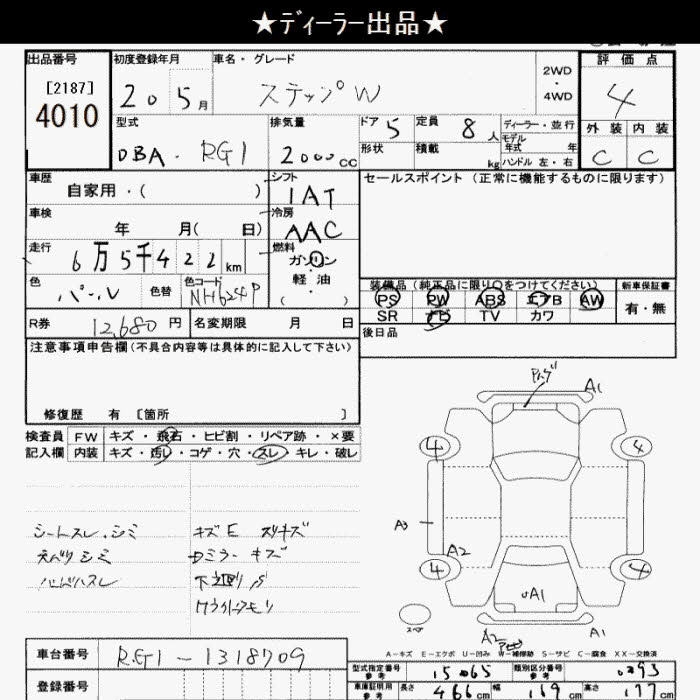 ★ディーラー出品★
出品番号 初度登録年月 車名・グレード 評価点
[2187] 20 5月 ステップW 2WD・4WD 4
4010 型式 排気量 ドア 5 定員 8人 ディーラー・並行 外装 内装
DBA・RG1 2000cc 形状 積載 kg モデル年式 年 ハンドル 左・右 C C
車歴 シフト セールスポイント(正常に機能するものに限ります)
自家用・( ) IAT
車検 冷房
年 月( 日) AAC
走行 燃料
6万5千422km ガソリン・軽油・( )
色 パール 色替 色コード NH624P
装備品(純正品に限り○をつけてください) 新車保証書
PS PW ABS エアB AW 有・無
SR ナビ TV カワ
R券 12,680円 名変期限 月 日 後日品
注意事項申告欄(不具合内容等は具体的に記入して下さい)
修復歴 有 [箇所 ]
検査員 FW キズ・飛石・ヒビ割・リペア跡・×要
記入欄 内装 キズ・汚レ・コゲ・穴・スレ・キレ・破レ
A1
4 4
A3
A2
4 4
A1
A2 A1
シートスレ・シミ キズE スリキズ
天バリシミ ミラーキズ
ハンドルスレ 下廻りS
A-キズ E-エクボ U-凹み W-補修跡 S-サビ C-腐食 XX-交換済
車台番号 RG1-1318709
型式指定番号 参考 15065 類別区分番号 参考 0293
登録番号 車庫証明用 参考 長さ 466cm 幅 169cm 高さ 177cm